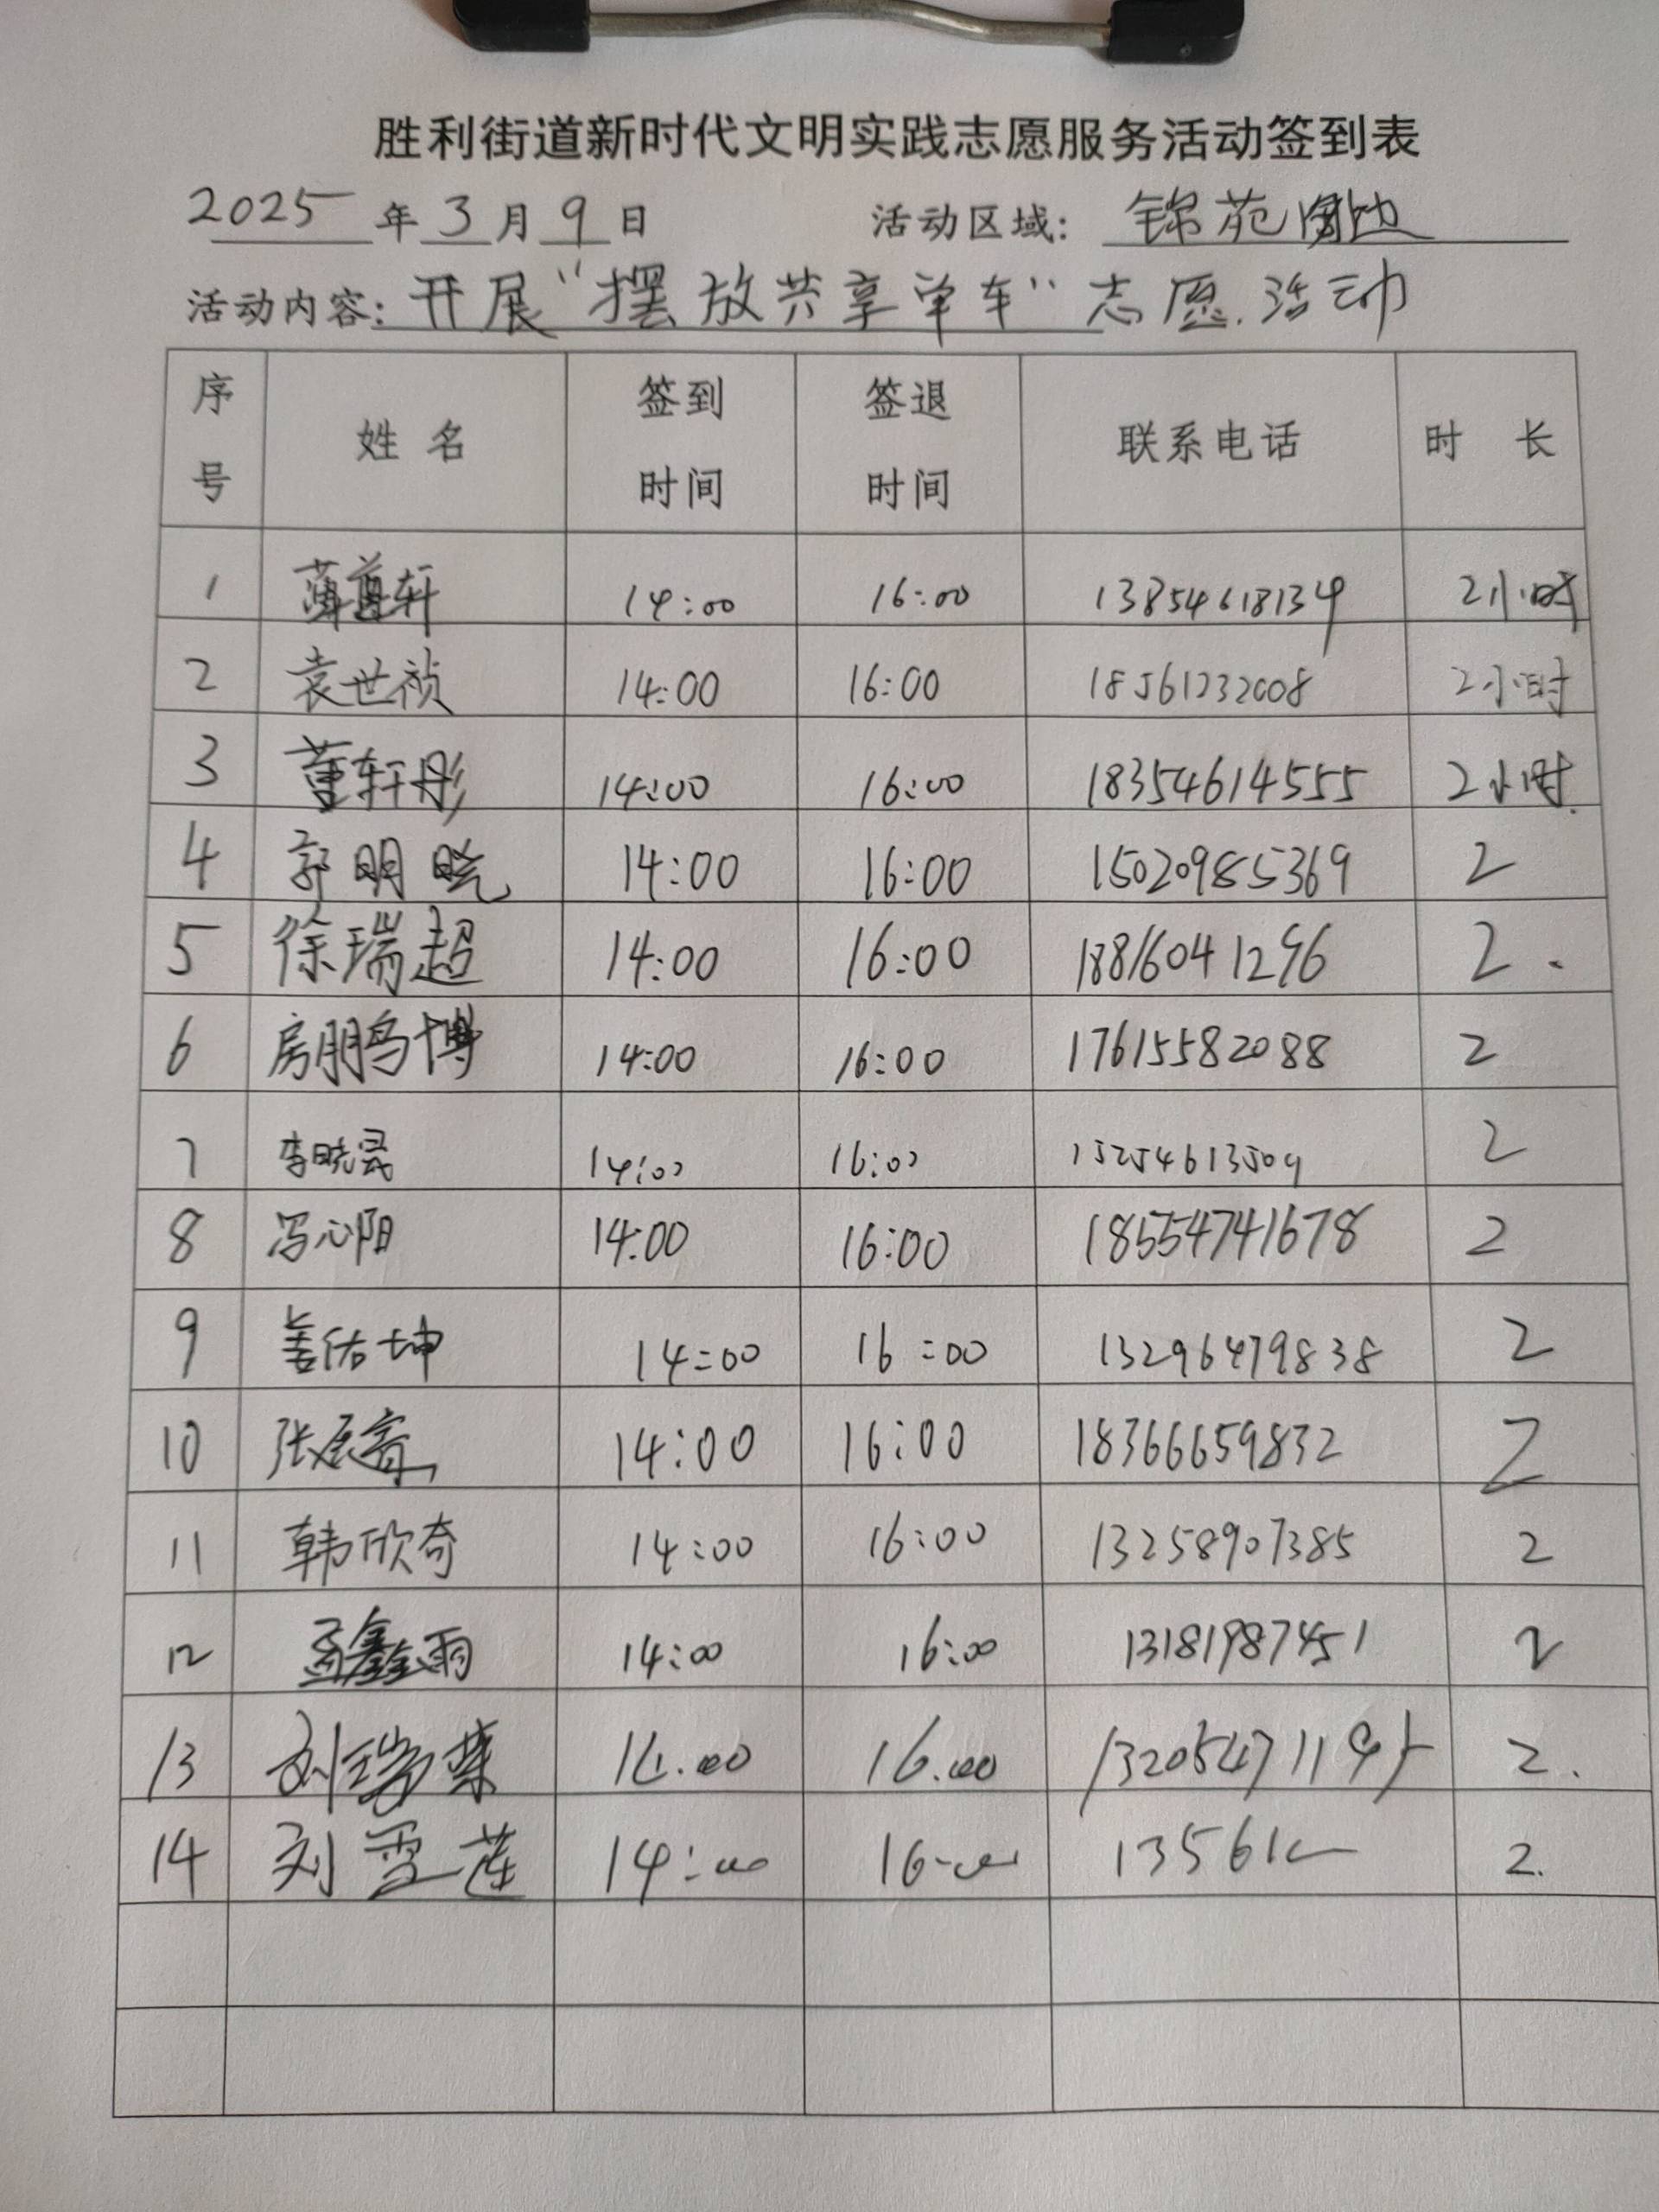 胜利街道新时代文明实践志愿服务活动签到表
2025年3月9日 活动区域：锦苑周边
活动内容：开展“摆放共享单车”志愿活动
序号 姓名 签到时间 签退时间 联系电话 时长
1 薄 轩 14:00 16:00 13854618134 2小时
2 袁世祯 14:00 16:00 18561232008 2小时
3 董轩彤 14:00 16:00 18354614555 2小时
4 郭明晓 14:00 16:00 15020985369 2
5 徐瑞超 14:00 16:00 18816041296 2.
6 房鹏博 14:00 16:00 17615582088 2
7 李晓晟 14:00 16:00 15254613509 2
8 冯心阳 14:00 16:00 18554741678 2
9 姜佑坤 14:00 16:00 13296479838 2
10 张 14:00 16:00 18366659832 2
11 韩欣奇 14:00 16:00 13258907385 2
12 孟鑫雨 14:00 16:00 13181987451 2
13 刘瑞荣 14.00 16.00 2.
14 刘雪莲 14:00 16-00 13561 2.